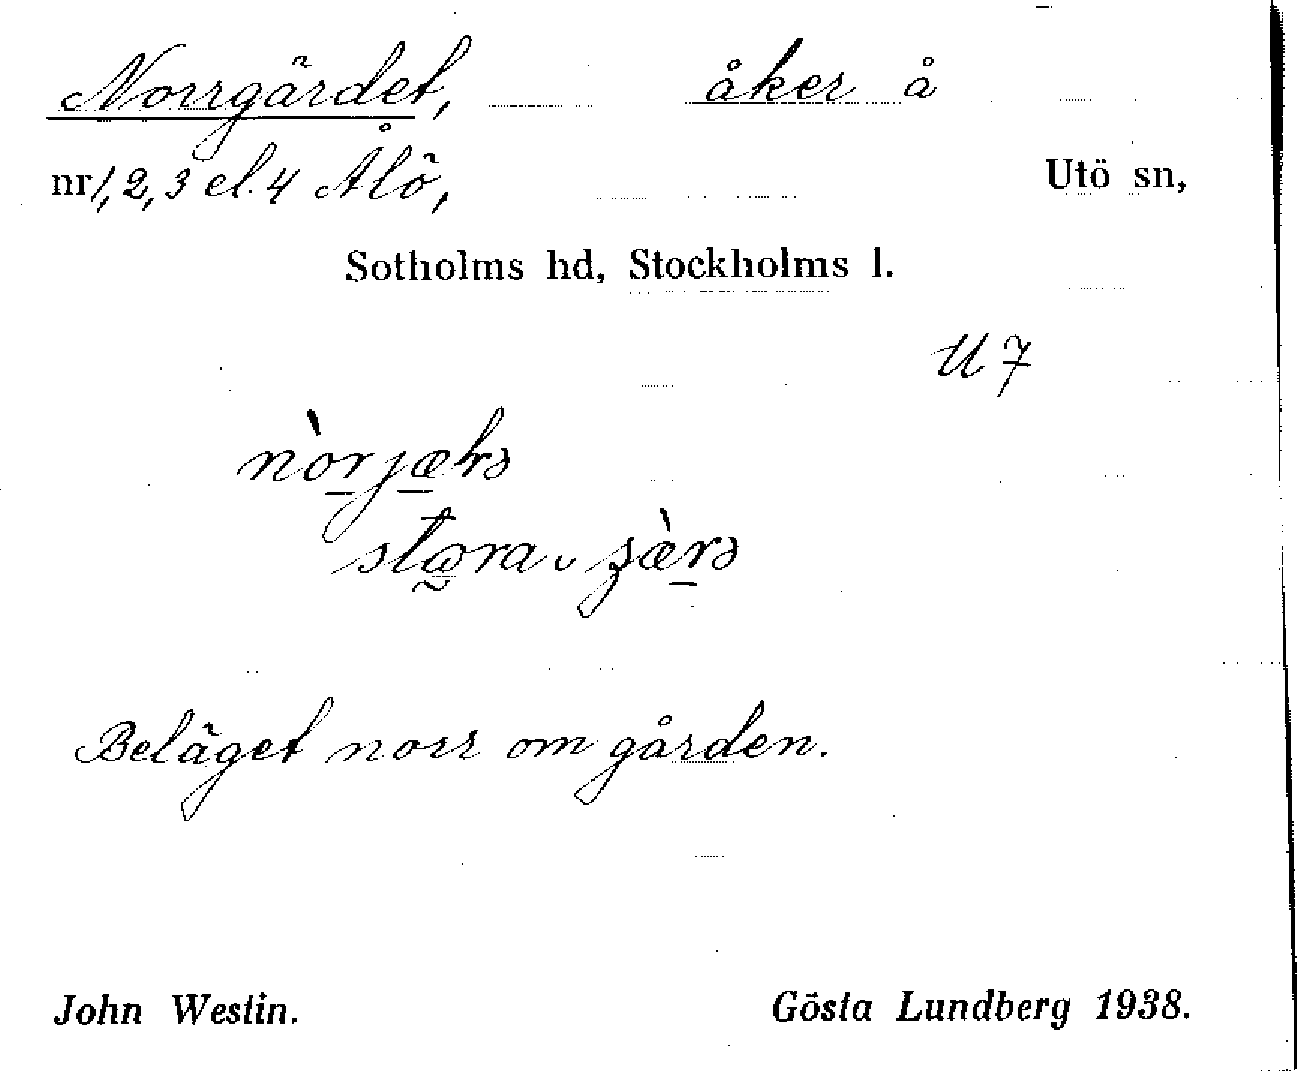 Norrgärdet, åker å
nr 1, 2, 3 el. 4 Ålö, Utö sn,
Sotholms hd, Stockholms l.
U 7
Beläget norr om gården.
John Westin. Gösta Lundberg 1938.